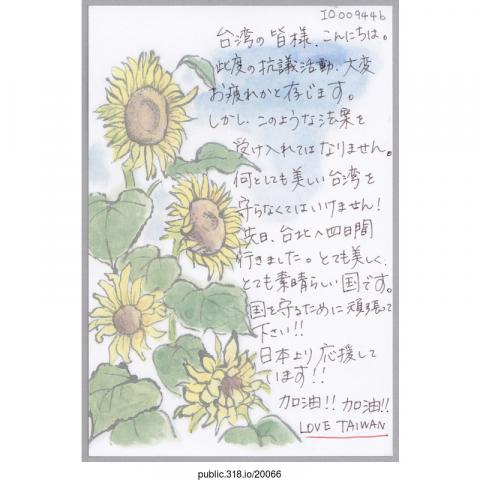 ID009446
台湾の皆様、こんにちは。
此度の抗議活動、大変
お疲れかと存じます。
しかし、このような法案を
受け入れてはなりません。
何としても美しい台湾を
守らなくてはいけません!
先日、台北へ四日間
行きました。とても美しく、
とても素晴らしい国です。
国を守るために頑張って
下さい!!
日本より応援して
います!!
加油!! 加油!!
LOVE TAIWAN
public.318.io/20066